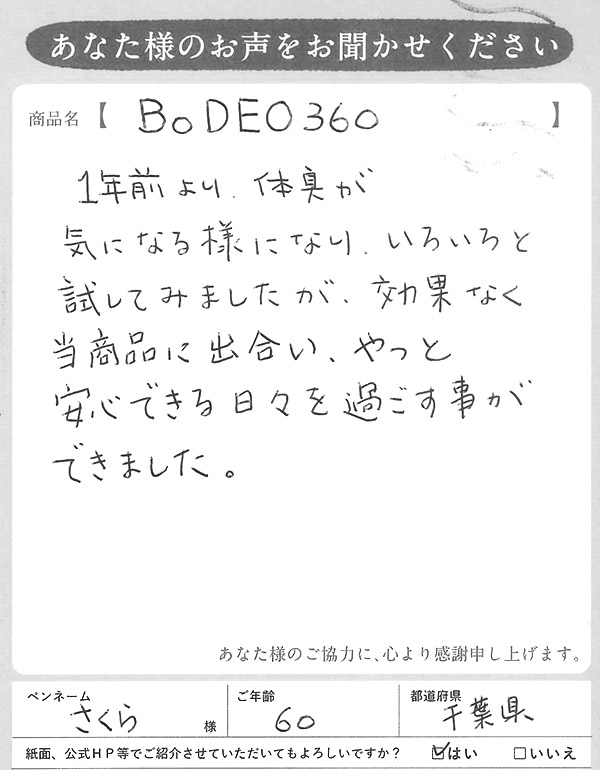 あなた様のお声をお聞かせください
商品名【 BoDEO360 】
1年前より、体臭が
気になる様になり、いろいろと
試してみましたが、効果なく
当商品に出合い、やっと
安心できる日々を過ごす事が
できました。
あなた様のご協力に、心より感謝申し上げます。
ペンネーム さくら 様 ご年齢 60 都道府県 千葉県
紙面、公式HP等でご紹介させていただいてもよろしいですか? ☑はい □いいえ